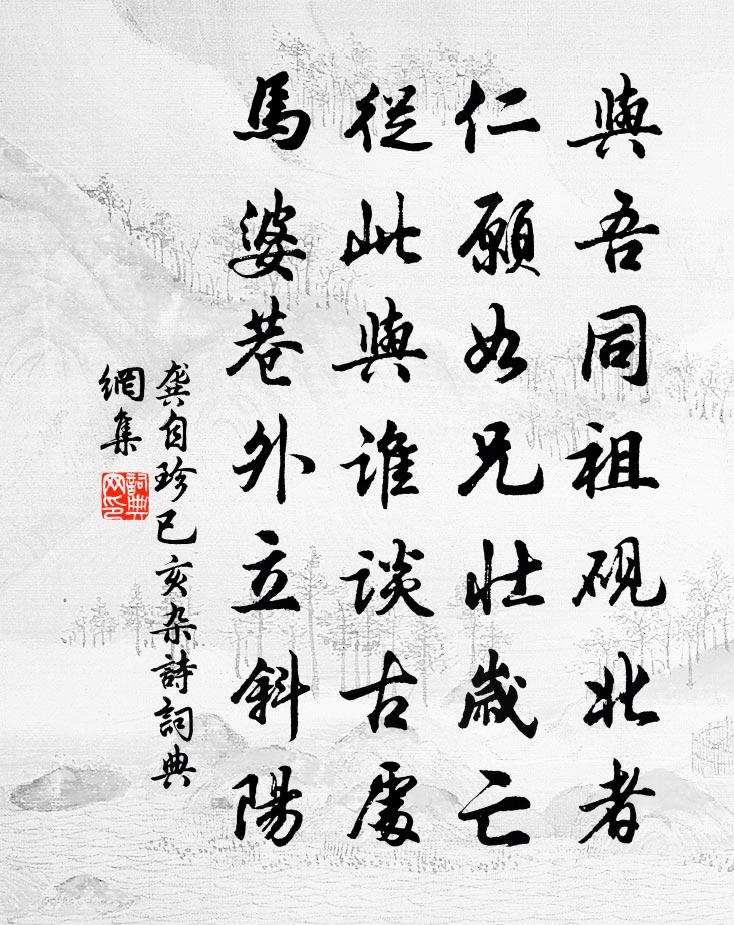 與吾同祖硯北者
仁願如兄壯歲亡
從此與誰談古處
馬婆巷外立斜陽
龔自珍己亥杂詩詞典
網集
詞典
网印